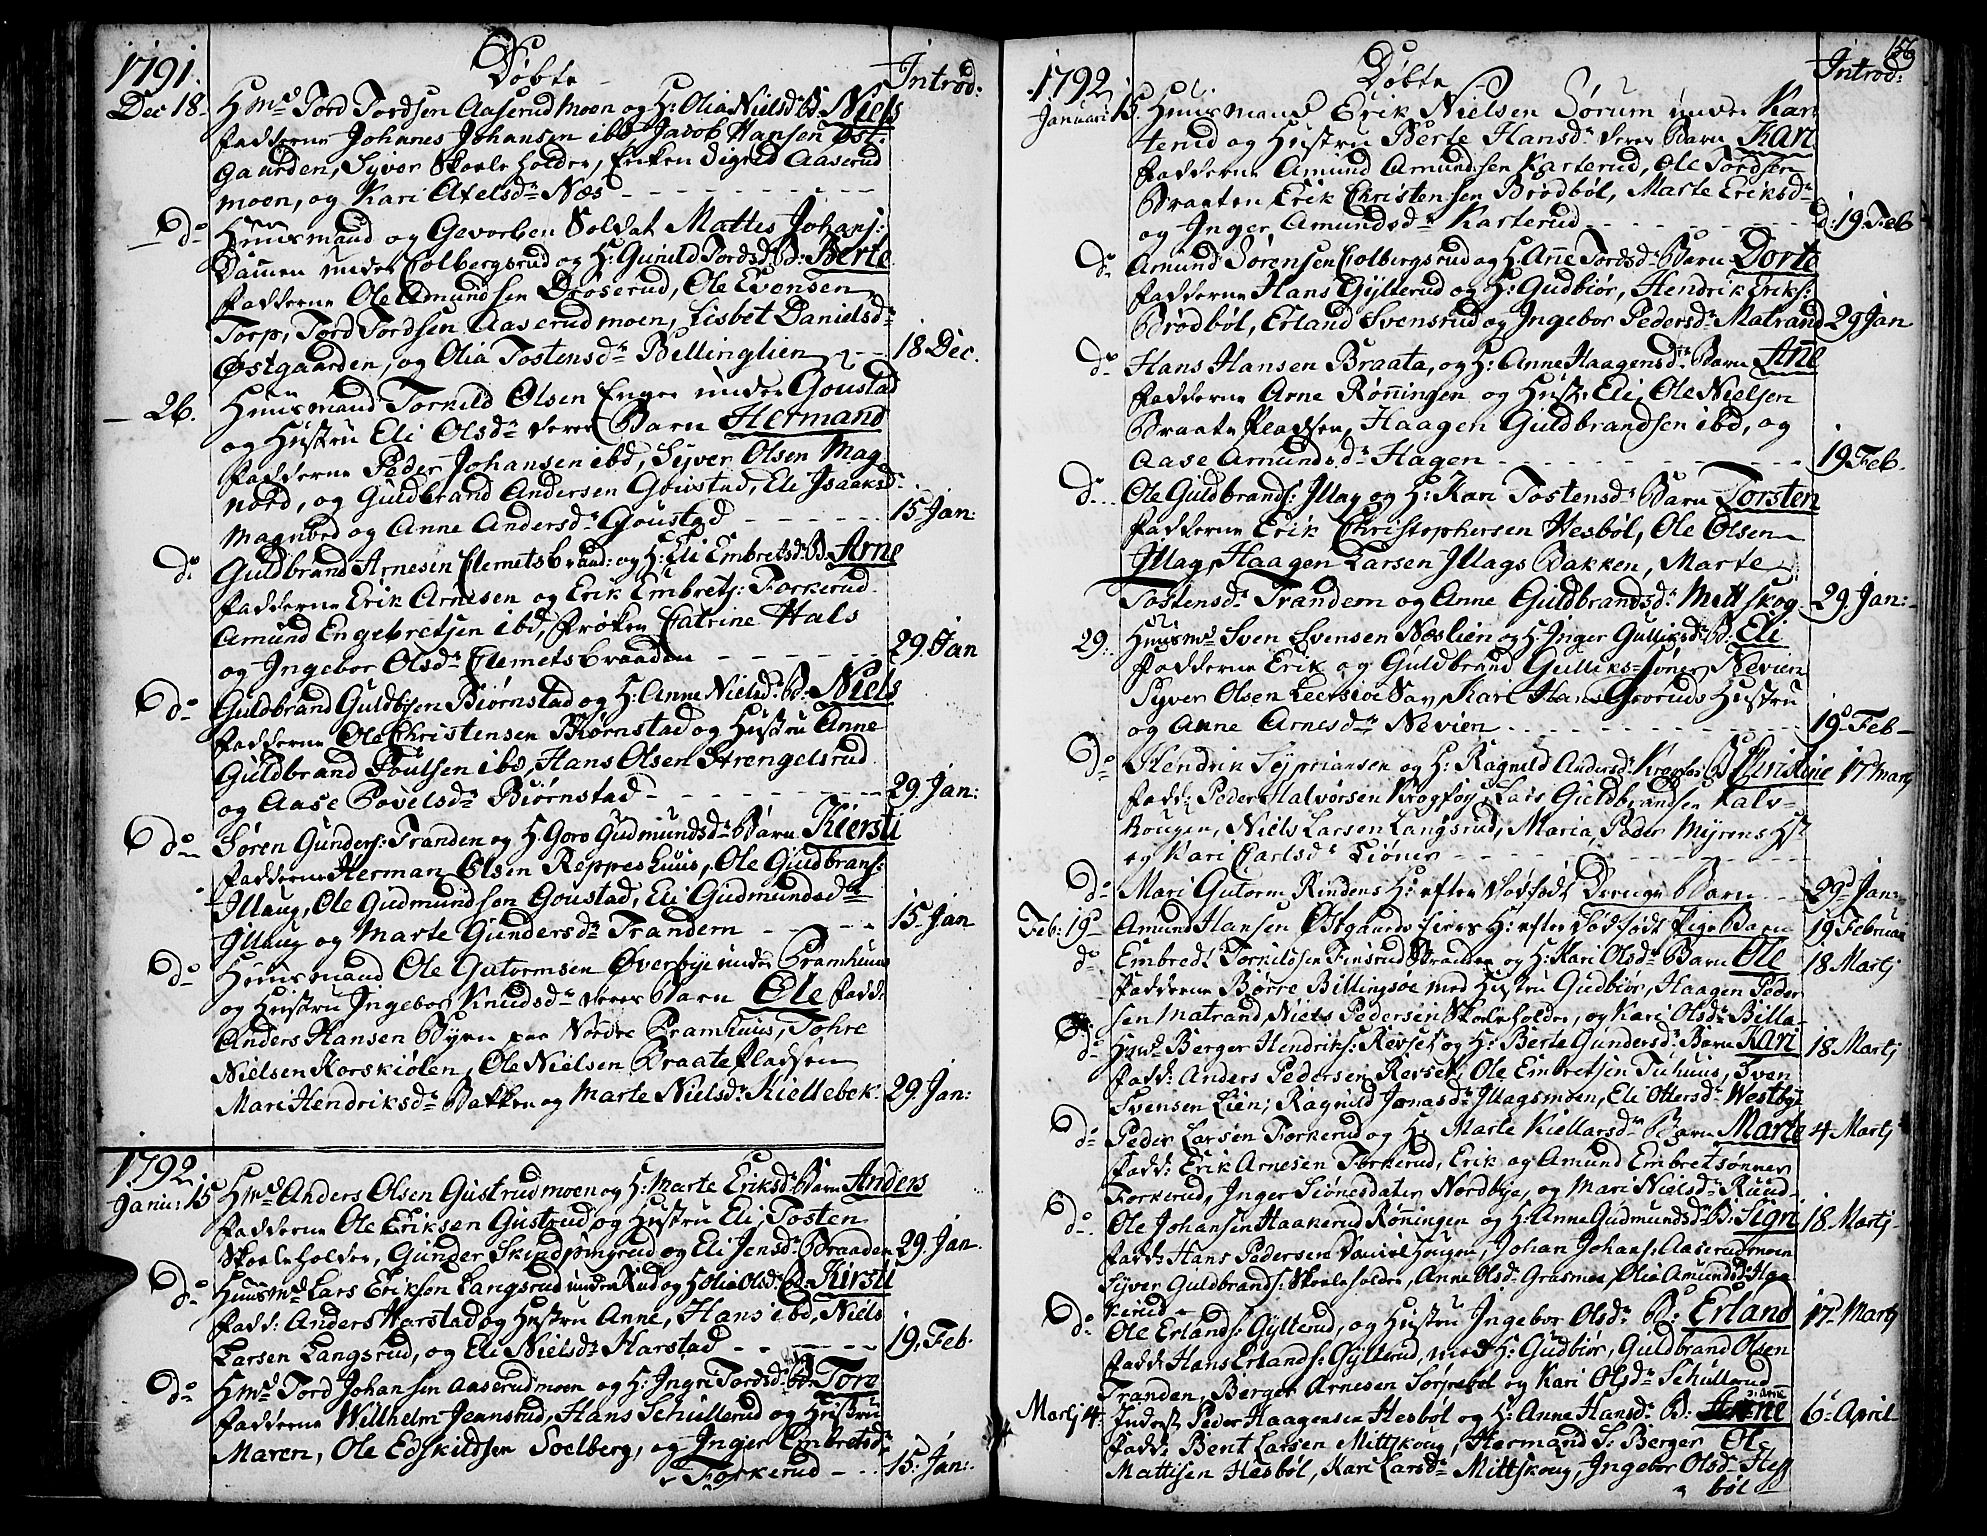 1791. Døbte Introd:
Dec 18. Hmd Tord Tordsen Aaserudmoen og H: Olia Nielsdr B: Niels
fadderne Johanes Johansen ibd Jacob Hansen Øst-
gaarden, Syver Skoeleholder, Sigrid Aaserud
moen, og Kari Axelsdr Næs
do Huusmand og Gevorben Soldat Mattis Johans:
Damen under Colbergsrud og H: Gunild Tordsd B: Berte
fadderne Ole Amundsen Drøserud, Ole Evensen
Torp, Tord Tordsen Aaserudmoen, Lisbet Danielsdr
Østgaarden, og Olia Tostensdr Bellinglien 18 Dec.
26. Huusmand Tornild Olsen Enger under Goustad
og Hustru Eli Olsdr deres Barn Hermand
fadderne Peder Johansen ibd, Syver Olsen Mag
nord, og Guldbrand Andersen Goustad, Eli Isaaksdr
Magnord og Anne Andersdr Goustad 15 Jan:
do Guldbrand Arnesen Clemetsbraad: og H: Eli Embretsdr B. Arne
fadderne Erik Arnesen og Erik Embrets: Forkerud
Amund Engebretsen ibd, Frøken Catrine Hals
og Ingebor Olsdr Clemetsbraaden 29. Jan
do Guldbrand Guldbrsen Biørnstad og H: Anne Nielsdr B: Niels
fadderne Ole Christensen Biørnstad og Hustru Anne
Guldbrand Poulsen ibd, Hans Olsen Strengelsrud
og Aase Povelsdr Biørnstad 29. Jan:
do Søren Gunders: Tranden og H: Goro Gudmundsdr Barn Kiersti
fadderne Herman Olsen Reppeshuus, Ole Guldbrans:
Illaug, Ole Gudmundsen Goustad, Eli Gudmundsdr
Illaug og Marte Gundersdr Trandem 15 Jan
do Huusmand Ole Gutormsen Øverbye under Pramhuus
og Hustru Ingebor Knudsdr deres Barn Ole fadd:
Anders Hansen Byen paa Nordre Pramhuus, Tohre
Nielsen Korskiølen, Ole Nielsen Braate Pladsen
Mari Hendriksdr Bakken og Marte Nielsdr Kiellebek. 29. Jan:
1792
Janu: 15 Hmd Anders Olsen Gustrudmoen og H: Marte Eriksdr Barn Anders
fadderne Ole Eriksen Gustrud og Hustru Eli, Tosten
Skoeleholder, Gunder Skindpungrud og Eli Jensdr Braaden 29. Jan
do Huusmd Lars Eriksen Langsrud under Rud og H: Olia Olsdr B. Kirsti
fadd: Anders Harstad og Hustru Anne, Hans ibd, Niels
Larsen Langsrud, og Eli Nielsdr Harstad 19. Feb
do Hmd Tord Johansen Aaserudmoen og H: Ingri Tordsd: B: Tore
fadderne Willhelm Jennsrud, Hans Schullerud og Hustru
Maren, Ole Edskildsen Soelberg, og Inger Embretsdr
Forkerud 15. Jan:
156
1792 Døbte Introd:
Januari 15. Huusmand Erik Nielsen Sørum under Kar
terud og Hustru Berte Hansdr deres Barn Kari
fadderne Amund Amundsen Karterud, Ole Tordsen
Braaten Erik Christensen Brødbøl, Marte Eriksdr
og Inger Amundsdr Karterud d: 19. Feb
do Amund Sørensen Colbergsrud og H: Anne Tordsdr Barn Dorte
fadderne Hans Gylterud og H: Gudbiør, Hendrik Eriks:
Brødbøl, Erland Svensrud og Ingebor Pedersdr Matrand 29 Jan
do Hans Hansen Braata, og H: Anne Haagensdr Barn Ane
fadderne Arne Rønningen og Hustr Eli, Ole Nielsen
Braate Pladsen, Haagen Guldbrandsen ibd, og
Aase Amundsdr Hagen 19. Feb.
do Ole Guldbrands: Illag og H: Kari Tostensdr Barn Torsten
fadderne Erik Christophersen Hesbøl, Ole Olsen
Illag, Haagen Larsen Illags Bakken, Marte
Tostensdr Trandem og Anne Guldbrandsdr Mittskog 29. Jan:
29. Huusmd Sven Svensen Næslien og H: Inger Gulliksdr B: Eli
fadderne Erik og Guldbrand Gulliks-sønner Nevien
Syver Olsen Leersiøe Sav, Kari Hans Grøruds Hustru
og Anne Arnesdr Nevien 19d Feb
do Hendrik Sypriansen og H: Ragnild Andersdr Krogfos B Christine 17 Martj
fadd: Peder Halvorsen Krogfos, Lars Guldbrandsen Kalv-
hougen, Niels Larsen Langsrud, Maria, Peder Myrens H:
og Kari Carlsdr Tiøner
do Mari Gutorm Rindens H: efter dødfødt Drenge Barn 29d Jan:
Feb: 19 Amund Hansen Østgaards eires H: efter dødfødt Pige Barn 19 Februar
do Embredt Torkildsen Finsrud Braaden og H: Kari Olsdr Barn Ole 18 Martj
fadderne Børre Billingsøe med Hustru Gudbiør, Haagen Peder
sen Matrand, Niels Pedersen Skoeleholder, og Kari Olsdr Billa-
do Hmd Berger Hendriks: Revset og H: Berte Gundersdr Barn Kari 18 Martj
fadd: Anders Pedersen Revset, Ole Embretsen Tuhuus, Sven
Svensen Lien, Ragnild Jonasdr Illagsmoen, Eli Ottersdr Westbye
do Peder Larsen Forkerud og H: Marte Kiellarsdr Barn Marte 4 Martj
fadd: Erik Arnesen Forkerud, Erik og Amund Embretsønner
Forkerud, Inger Siønesdater Nordbye, og Mari Nielsdr Ruud
do Ole Johansen Haakerud Rønningen og H: Anne Gudmundsdr B: Sigri 18 Martj
fadd: Hans Pedersen Daniel Hougen, Johan Johans: Aaserudmoen
Syver Guldbrands: Skoeleholder, Anne Olsdr Grasmoe, Olia Amundsdr Haa
kerud
do Ole Erlands: Gylterud, og Hustru Ingebor Olsdr B: Erland 17 Martj
fadd: Hans Erlands: Gylterud, med H: Gudbiør, Guldbrand Olsen
Tranden, Berger Arnesen Sørprebøl og Kari Olsdr Schullerud
Martj 4. Inderst Peder Haagensen Hesbøl og H: Anne Hansdr B: Anne 6 April
fadd: Bent Larsen Mittskoug, Hermand S: Berger Ole
Mattisen Hesbøl, Kari Larsdr Mittskoug, Ingebor Olsdr Hes
bøl